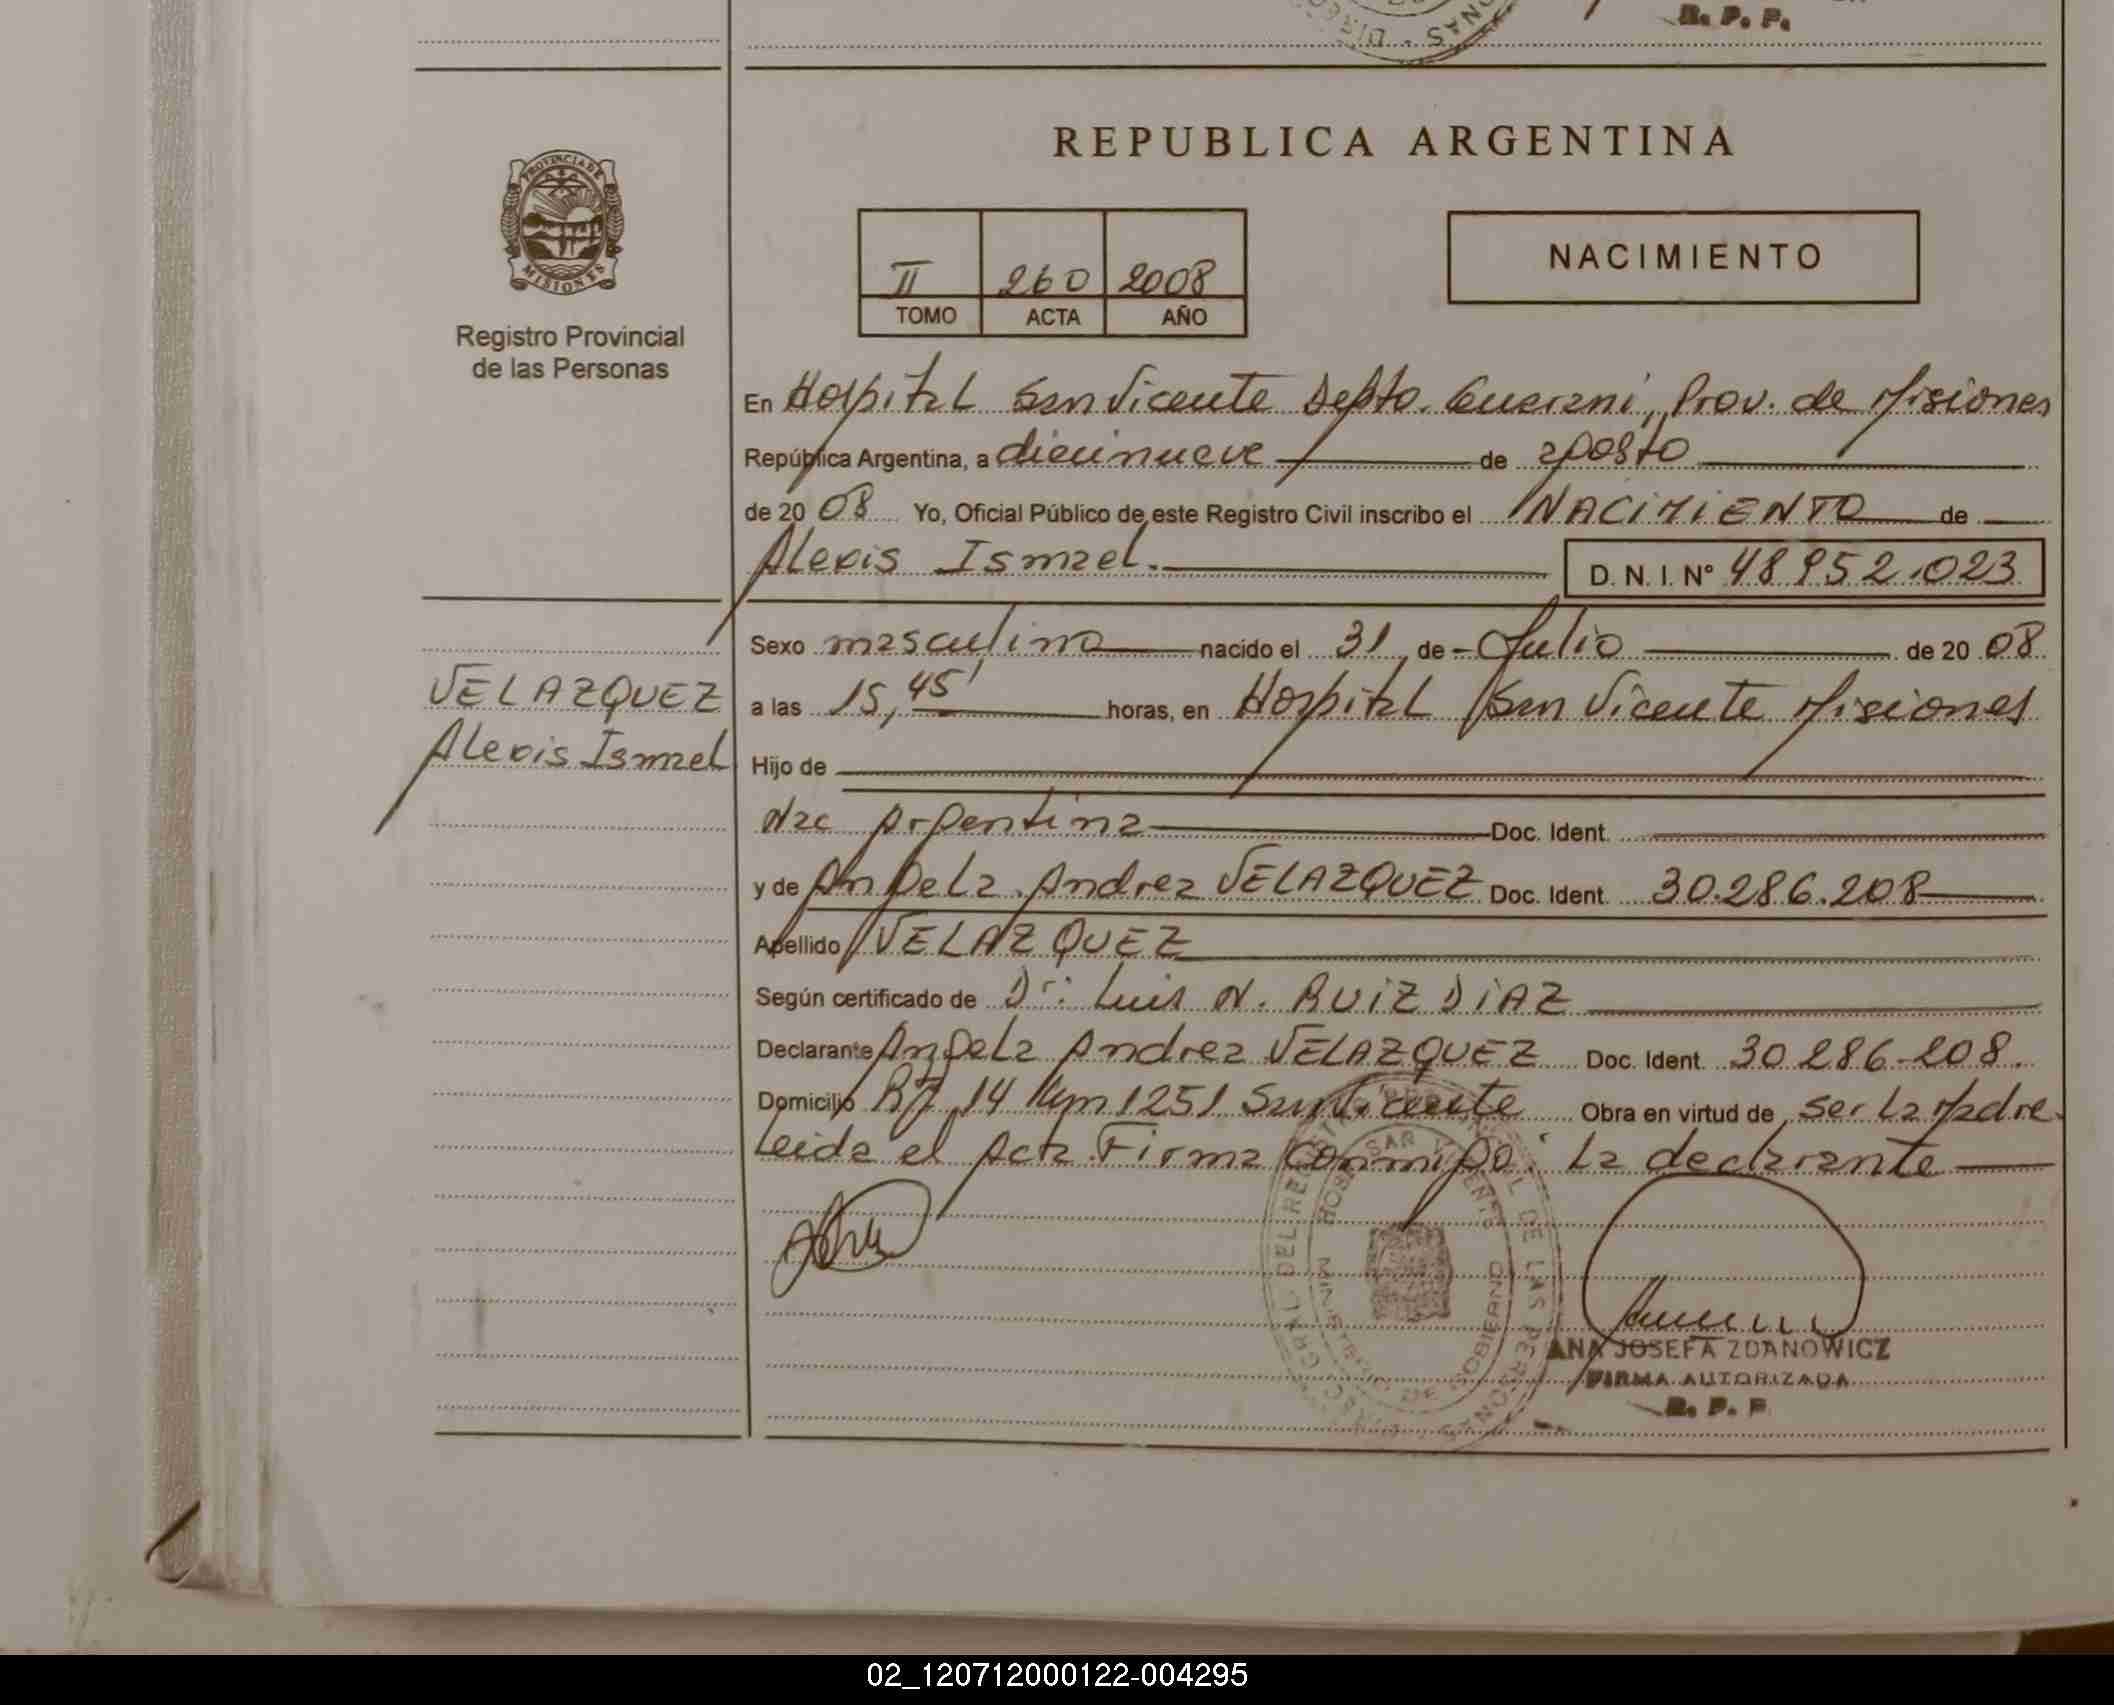 R. P. P.
REPUBLICA ARGENTINA
PROVINCIA DE
MISIONES
Registro Provincial
de las Personas
II 260 2008
TOMO ACTA AÑO
NACIMIENTO
En Hospital San Vicente Depto. Guarani, Prov. de Misiones
República Argentina, a diecinueve de agosto
de 20 08 Yo, Oficial Público de este Registro Civil inscribo el NACIMIENTO de
Alexis Ismael. D. N. I. N° 48952.023
Sexo masculino nacido el 31 de Julio de 20 08
VELAZQUEZ
Alexis Ismael
a las 15,45 horas, en Hospital San Vicente Misiones
Hijo de
Nac Argentina Doc. Ident.
y de Angela Andrea VELAZQUEZ Doc. Ident. 30.286.208
Apellido VELAZQUEZ
Según certificado de Dr: Luis N. RUIZ DIAZ
Declarante Angela Andrea VELAZQUEZ Doc. Ident. 30 286-208.
Domicilio 14 Km 1251 San Vicente Obra en virtud de ser la Madre.
Leida el Acta Firma Conmigo: La declarante
HOSP. SAN VICENTE
MINISTERIO DE GOBIERNO
ANA JOSEFA ZDANOWICZ
FIRMA AUTORIZADA
R. P. P
02_120712000122-004295